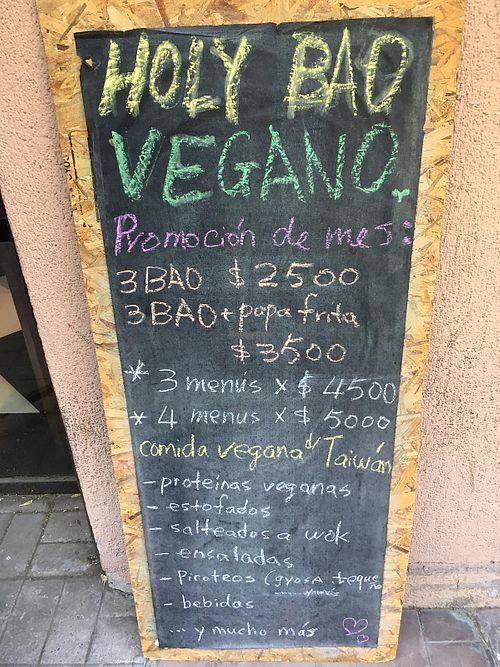 HOLY BAO
VEGANO.
Promoción de mes:
3 BAO $2500
3 BAO + papa frita
$3500
* 3 menús x $ 4500
* 4 menus x $ 5000
comida vegana d/ Taiwán
- proteínas veganas
- estofados
- salteados a wok
- ensaladas
- Picoteos (gyosa tequeño
y más
- bebidas
... y mucho más